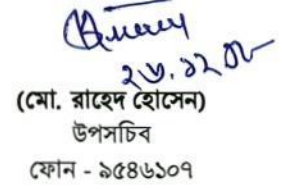 ২৬.১২.০৮
(মো. রাহেদ হোসেন)
উপসচিব
ফোন - ৯৫৪৬১০৭